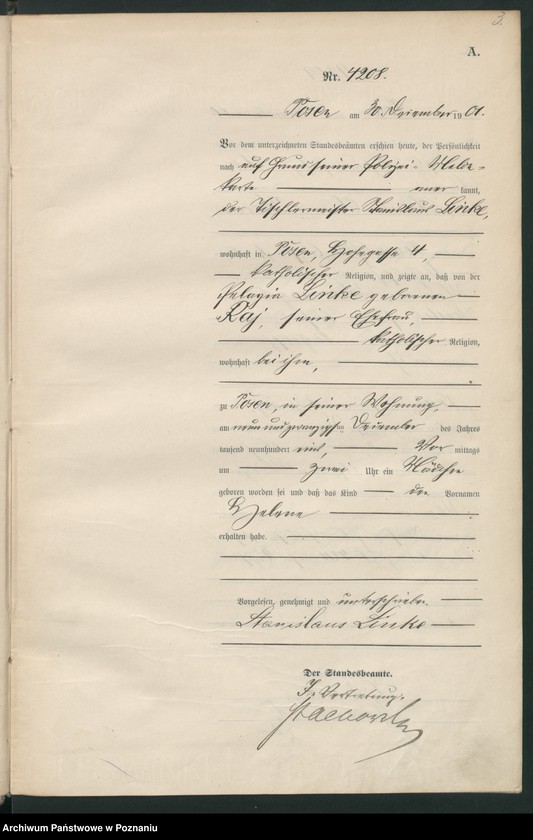 3.
A.
Nr. 4208.
Posen am 30. Dezember 1901.
Vor dem unterzeichneten Standesbeamten erschien heute, der Persönlichkeit
nach auf Grund seiner Polizei-Melde-
karte aner kannt,
der Tischlermeister Stanislaus Linke,
wohnhaft in Posen, Hohegasse 4,
katholischer Religion, und zeigte an, daß von der
Pelagia Linke geborenen
Raj, seiner Ehefrau,
katholischer Religion,
wohnhaft bei ihm,
zu Posen, in seiner Wohnung,
am neunundzwanzigsten Dezember des Jahres
tausend neunhundert eins, Vor mittags
um zwei Uhr ein Mädchen
geboren worden sei und daß das Kind den Vornamen
Helene
erhalten habe.
Vorgelesen, genehmigt und unterschrieben.
Stanislaus Linke
Der Standesbeamte.
In Vertretung.
Archiwum Państwowe w Poznaniu